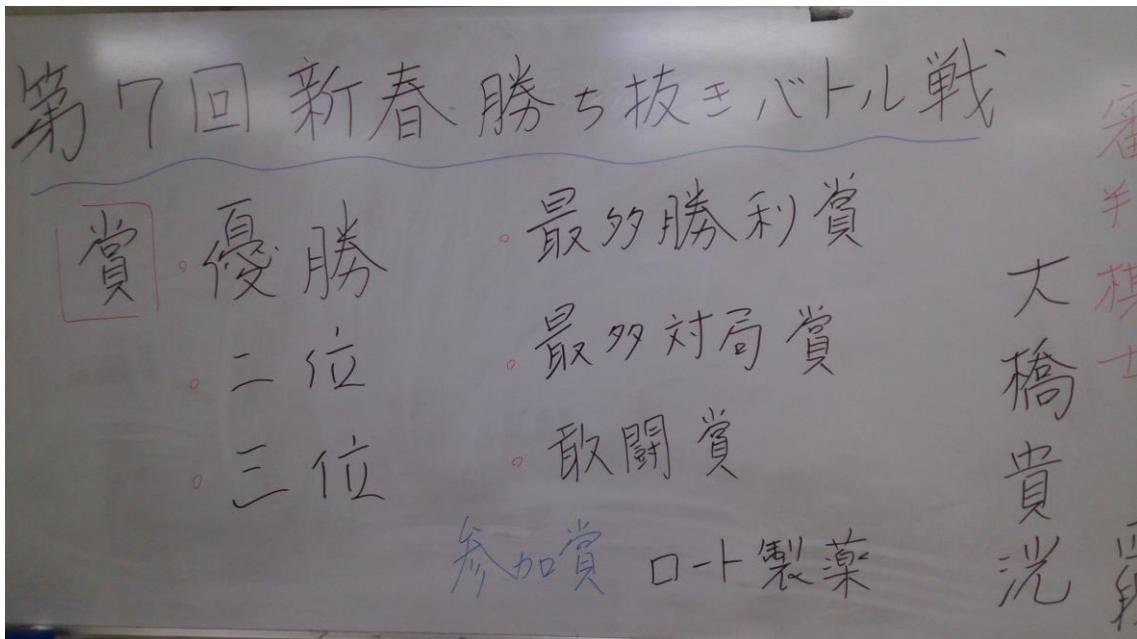 第7回 新春 勝ち抜きバトル戦
賞
・優勝
・二位
・三位
・最多勝利賞
・最多対局賞
・敢闘賞
参加賞 ロート製薬
大橋貴洸
手棋士